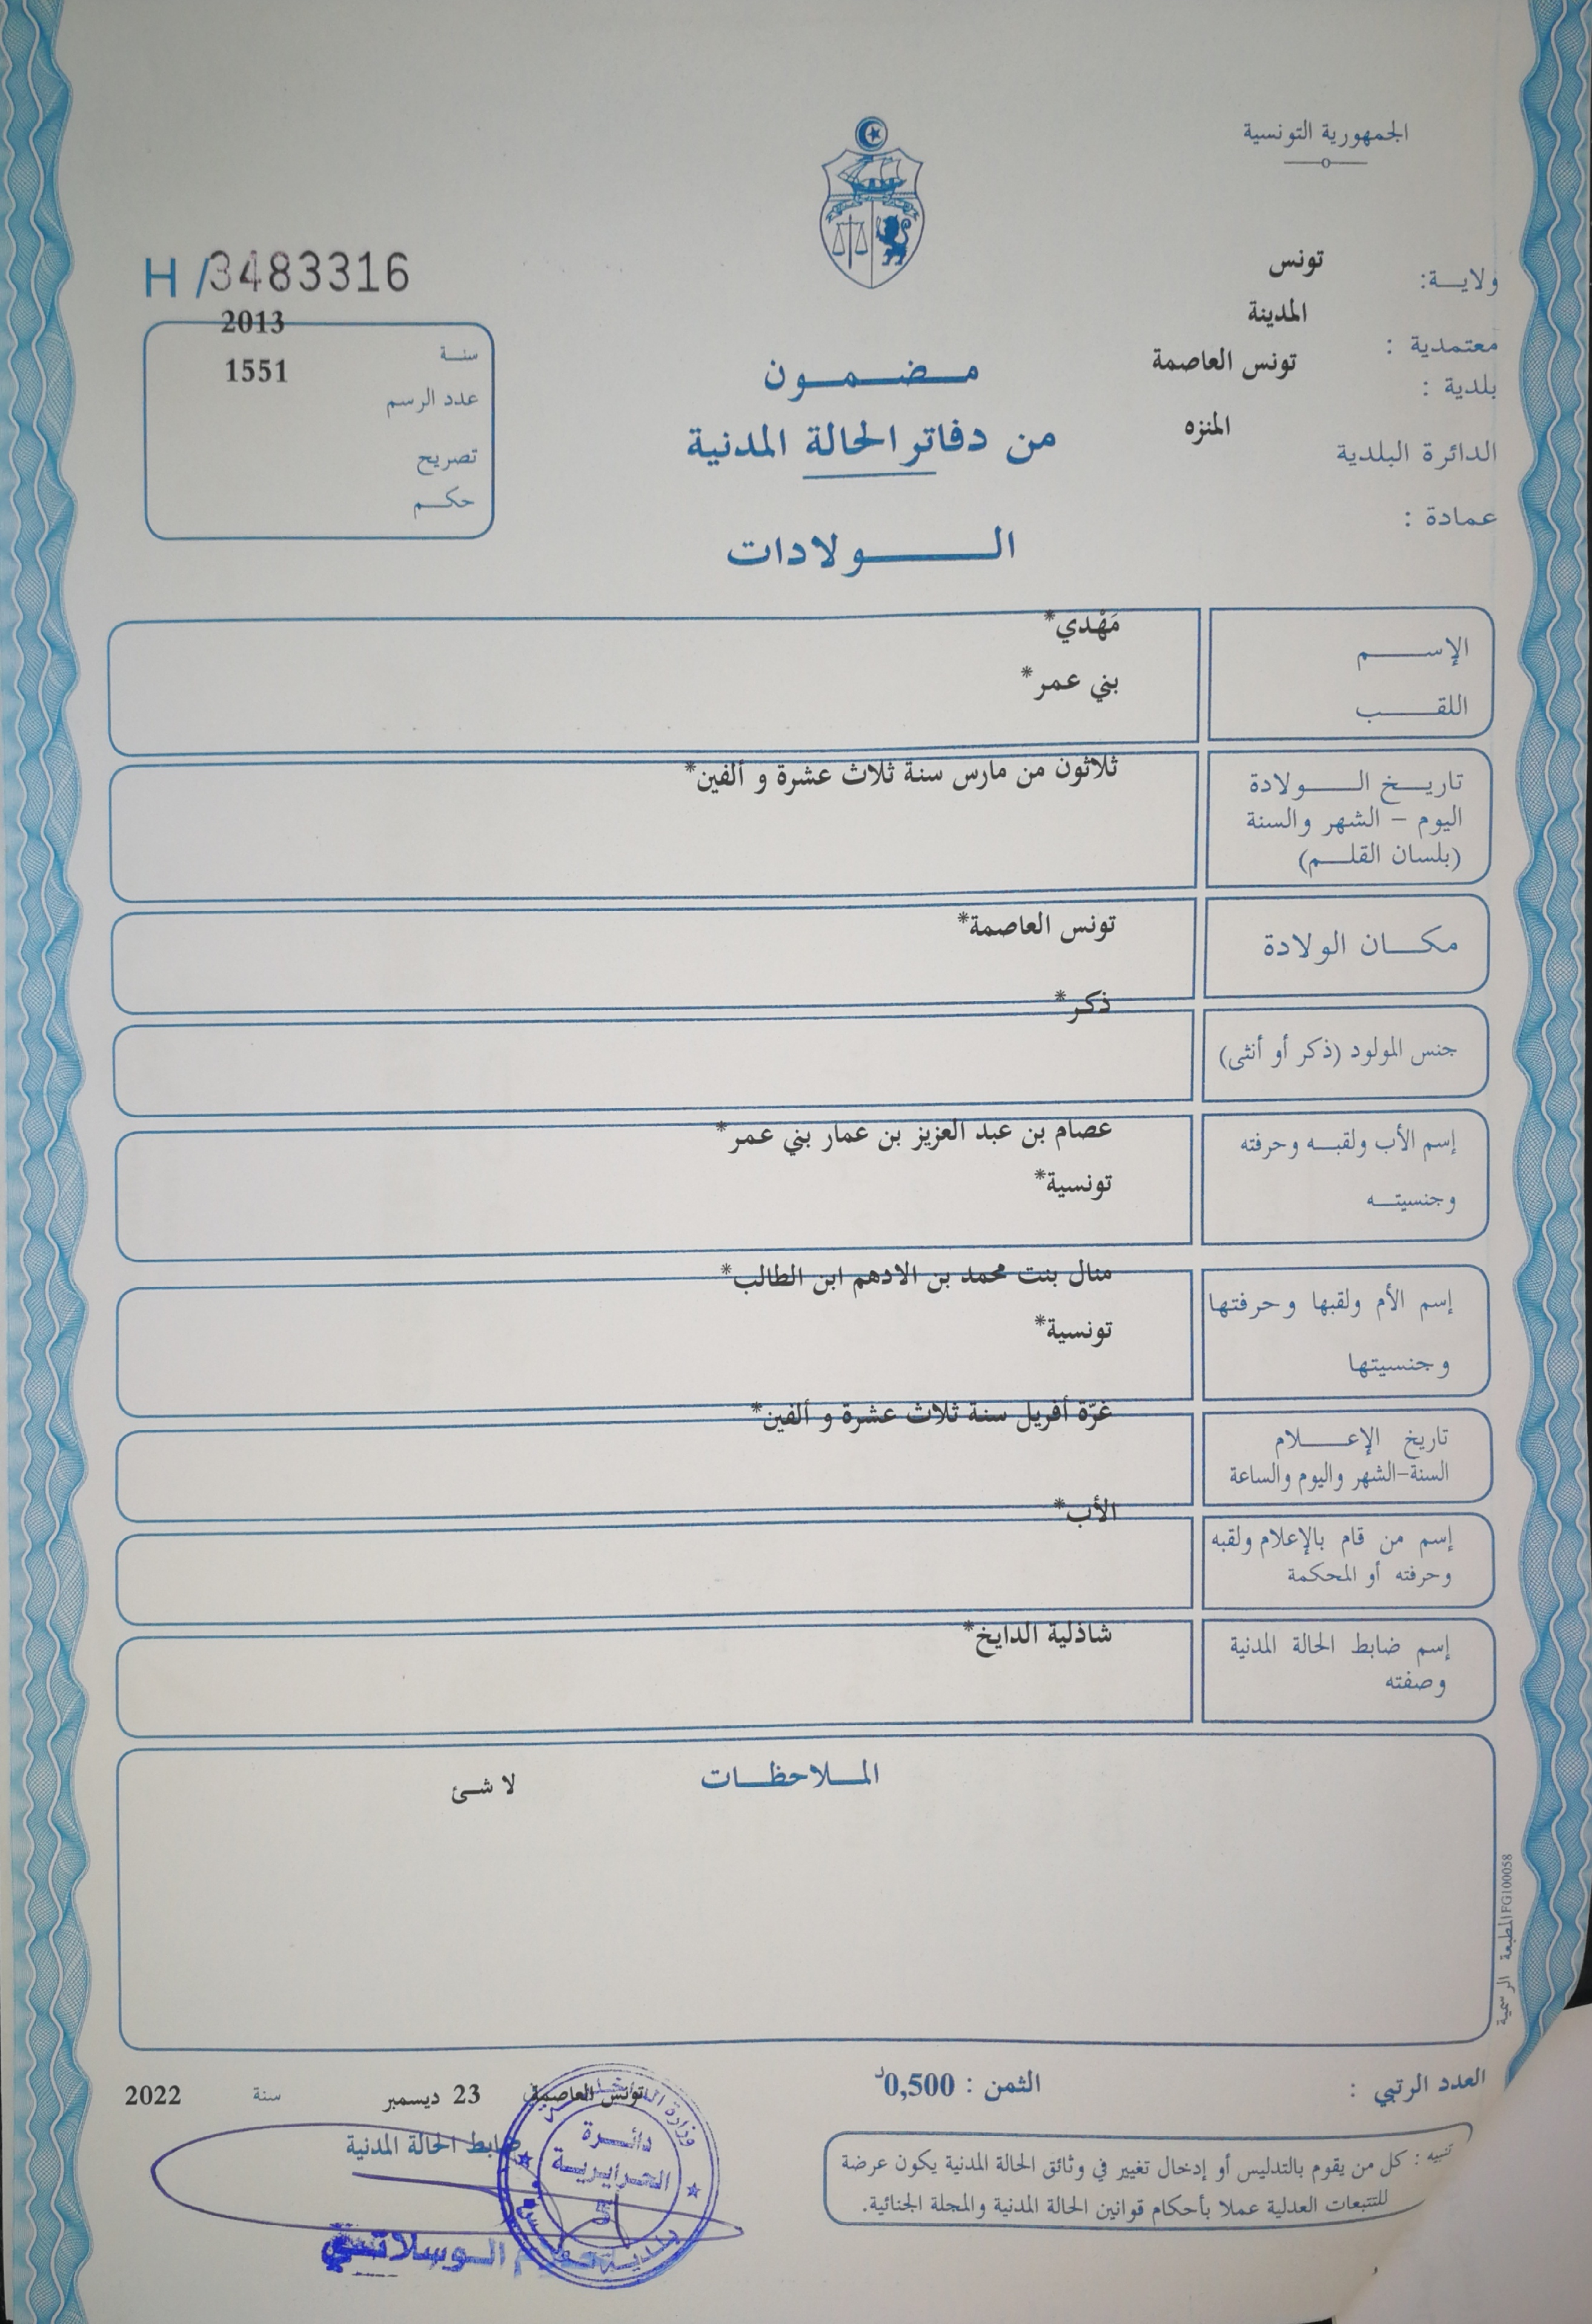 الجمهورية التونسية
ولاية: تونس
معتمدية : المدينة
بلدية : تونس العاصمة
الدائرة البلدية المنزه
عمادة :
H /3483316
سنة 2013
عدد الرسم 1551
تصريح
حكم
مضمون
من دفاتر الحالة المدنية
الولادات
الإسم مَهْدي*
اللقب بني عمر*
تاريخ الولادة ثلاثون من مارس سنة ثلاث عشرة و ألفين*
اليوم - الشهر والسنة
(بلسان القلم)
مكان الولادة تونس العاصمة*
جنس المولود (ذكر أو أنثى) ذكر*
إسم الأب ولقبه وحرفته عصام بن عبد العزيز بن عمار بني عمر*
وجنسيته تونسية*
إسم الأم ولقبها وحرفتها منال بنت محمد بن الادهم ابن الطالب*
وجنسيتها تونسية*
تاريخ الإعلام غرّة أفريل سنة ثلاث عشرة و ألفين*
السنة-الشهر واليوم والساعة
إسم من قام بالإعلام ولقبه الأب*
وحرفته أو المحكمة
إسم ضابط الحالة المدنية شاذلية الدايخ*
وصفته
الملاحظات
لا شئ
المطبعة الرسمية FG100058
العدد الرتبي :
الثمن : 0,500د
تونس العاصمة في 23 ديسمبر سنة 2022
ضابط الحالة المدنية
تنبيه : كل من يقوم بالتدليس أو إدخال تغيير في وثائق الحالة المدنية يكون عرضة
للتتبعات العدلية عملا بأحكام قوانين الحالة المدنية والمجلة الجنائية.
وزارة الداخلية
دائرة
الحرايرية
بلدية تونس
الوسلاتي